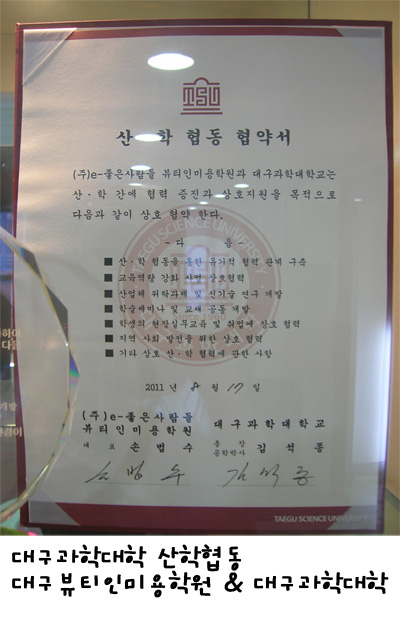 TSU
산·학 협동 협약서
(주)e-좋은사람들 뷰티인미용학원과 대구과학대학교는
산·학 간에 협력 증진과 상호지원을 목적으로
다음과 같이 상호 협약 한다.
- 다 음 -
TAEGU SCIENCE UNIVERSITY
■ 산·학 협동을 통한 유기적 협력 관계 구축
■ 교육역량 강화 사업 상호협력
■ 산업체 위탁과제 및 신기술 연구 개발
■ 학술세미나 및 교재 공동 개발
■ 학생의 현장실무교육 및 취업에 상호 협력
■ 지역 사회 발전을 위한 상호 협력
■ 기타 상호 산·학 협력에 관한 사항
2011 년 8 월 17 일
(주)e-좋은사람들
뷰티인미용학원 대구과학대학교
대표 손범수 총장 공학박사 김석종
손범수 김석종
TAEGU SCIENCE UNIVERSITY
대구과학대학 산학협동
대구뷰티인미용학원 & 대구과학대학